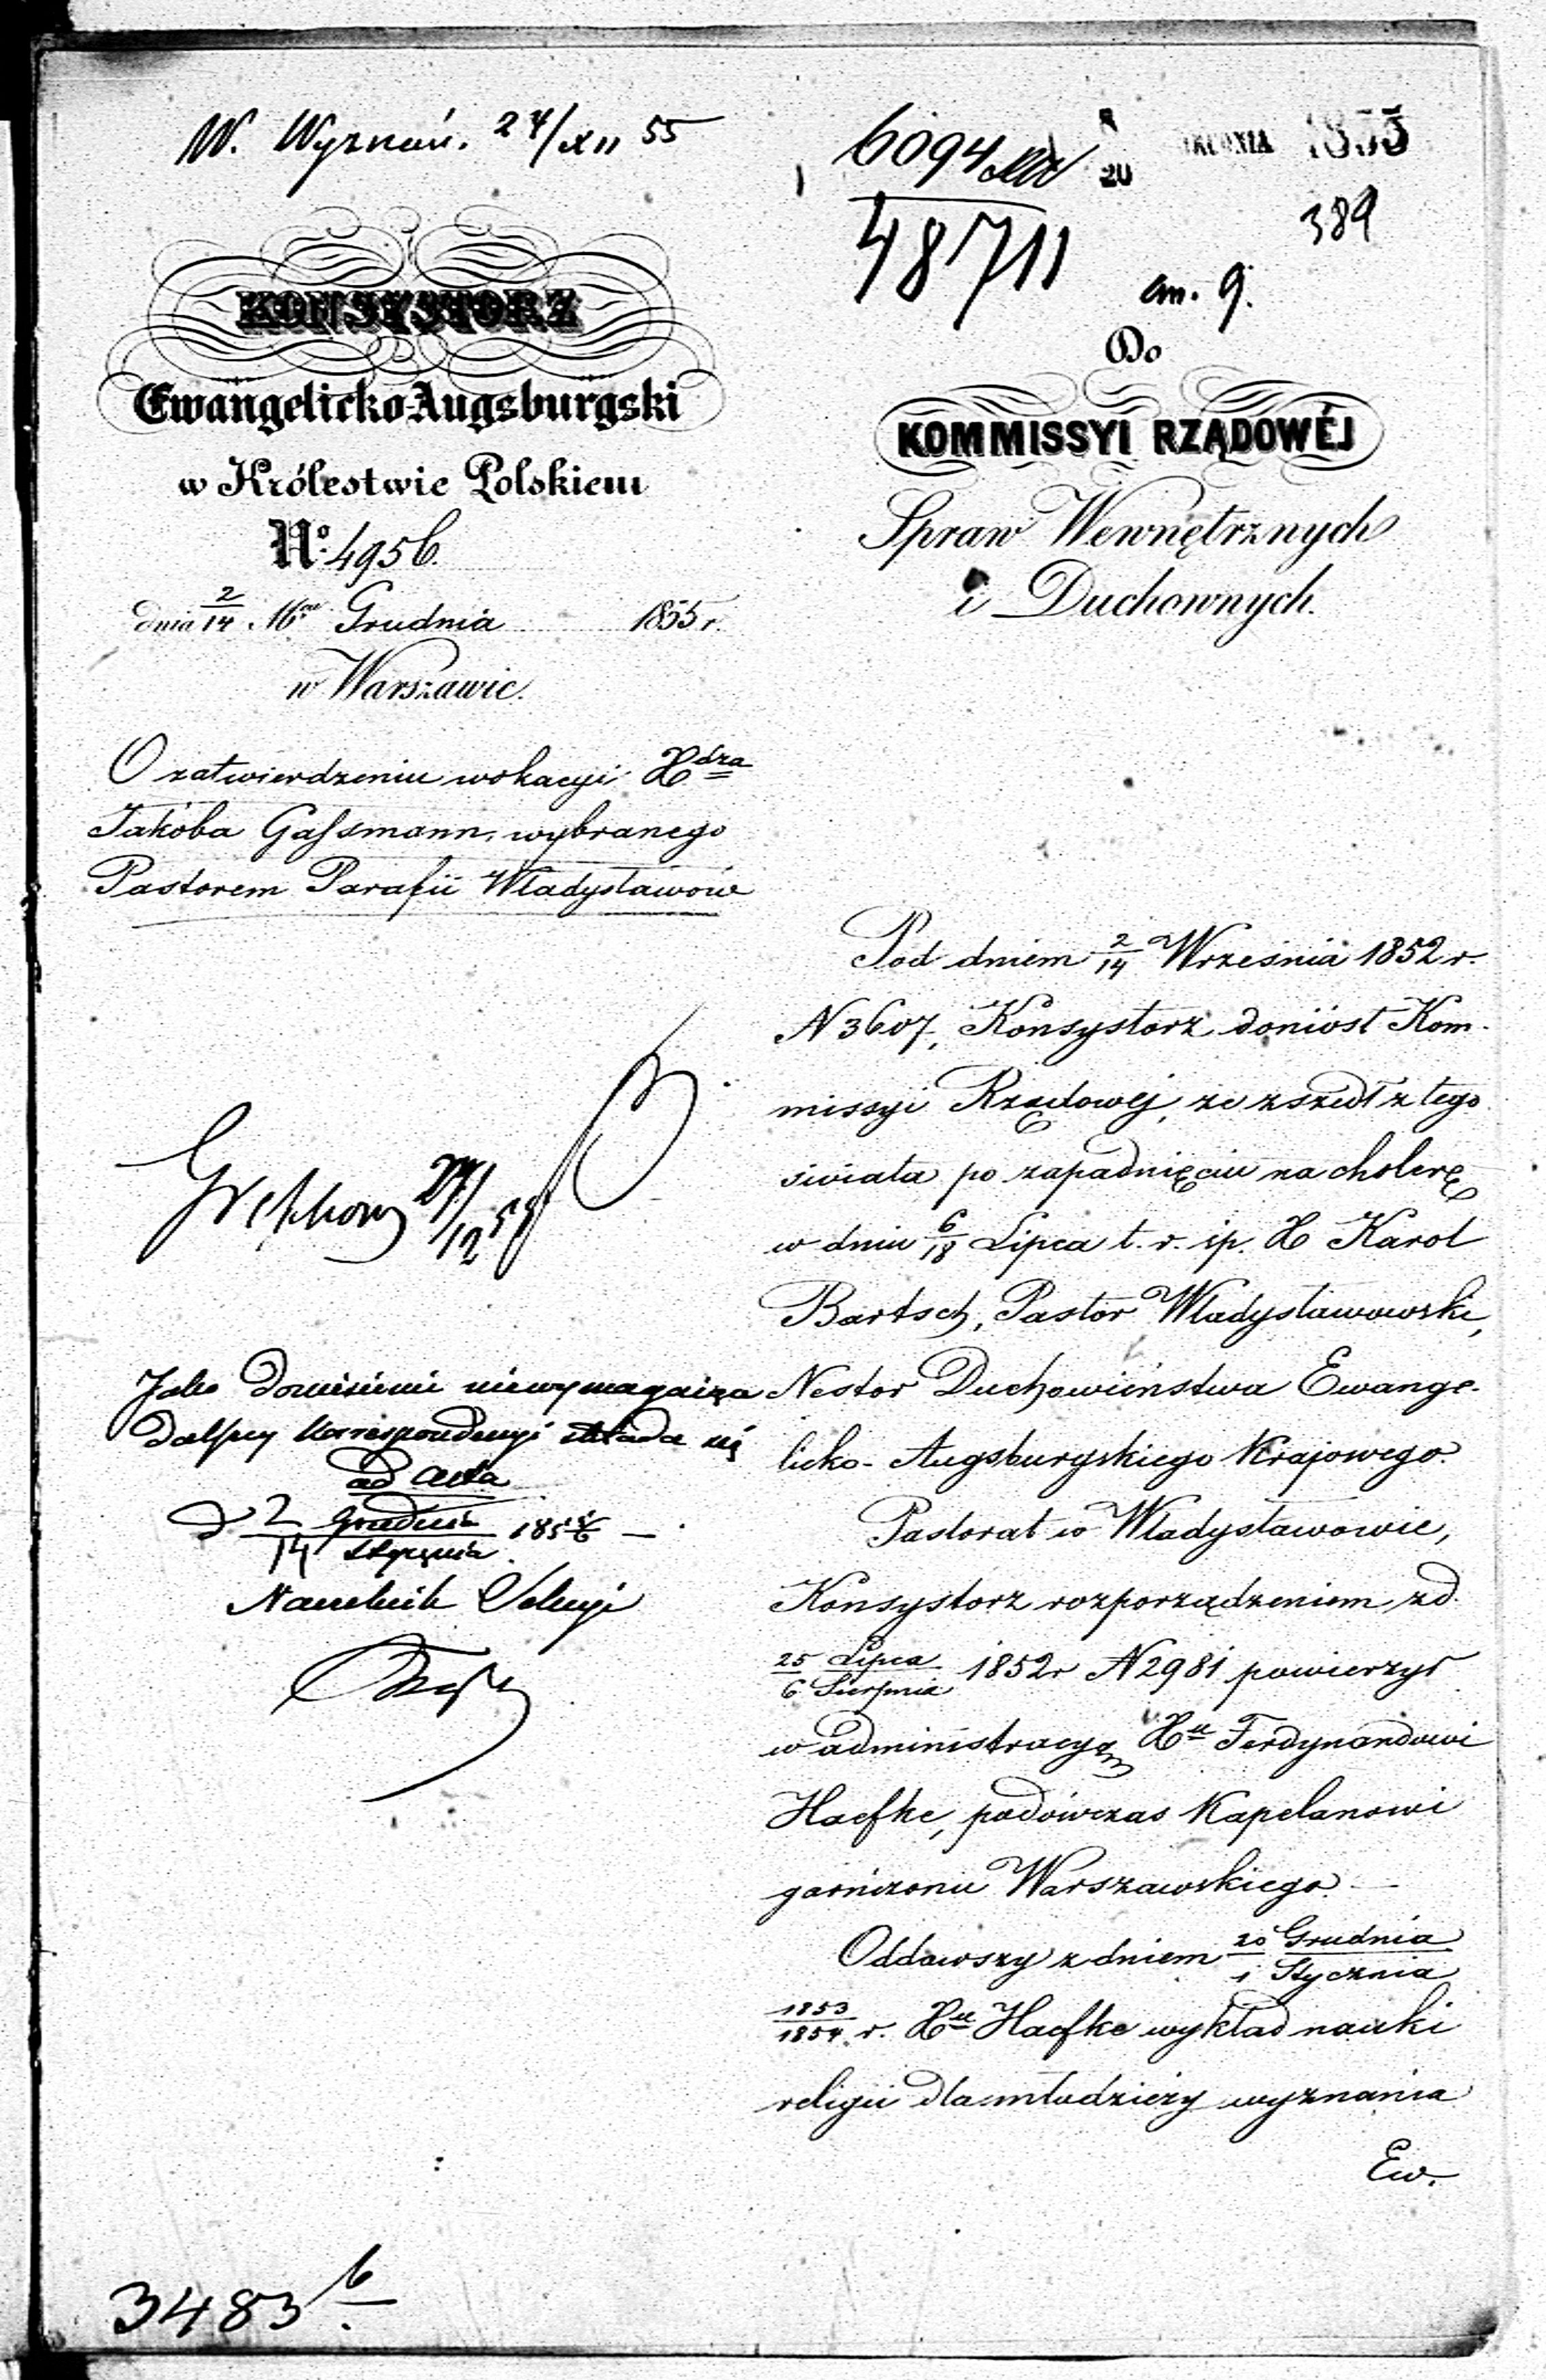 W. Wyznań. 24/XII 55
6094
20 GRUDNIA 1855
48711
389
an. 9.
KONSYSTORZ
Ewangelicko-Augsburgski
w Królestwie Polskiem
Nº 4956.
dnia 2/14 Mca Grudnia 1855 r.
w Warszawie.
Do
KOMMISSYI RZĄDOWÉJ
Spraw Wewnętrznych
i Duchownych.
O zatwierdzeniu wokacyi Xdza
Jakóba Gassmann, wybranego
Pastorem Parafii Władysławów
27/12 55
Jako doniesienie niewymagaiące
dalszey korrespondencyi składa się
ad acta
d 2/14 Grudnia/Stycznia 1855/6
Naczelnik Sekcyi
Pod dniem 2/14 Września 1852 r.
N 3607, Konsystorz doniósł Kom-
missyi Rządowéj, że zszedł z tego
świata po zapadnięciu na cholerę
w dniu 6/18 Lipca t. r. śp. X Karol
Bartsch, Pastor Władysławowski,
Nestor Duchowieństwa Ewange-
licko-Augsburgskiego Krajowego.
Pastorat w Władysławowie,
Konsystorz rozporządzeniem z d.
25 Lipca/6 Sierpnia 1852 r N 2981 powierzył
w administracyą Xu Ferdynandowi
Haefke, podówczas Kapelanowi
garnizonu Warszawskiego.
Oddawszy z dniem 20 Grudnia/1 Stycznia
1853/1854 r. Xu Haefke wykład nauki
religii dla młodzieży wyznania
Ew.
3483 6